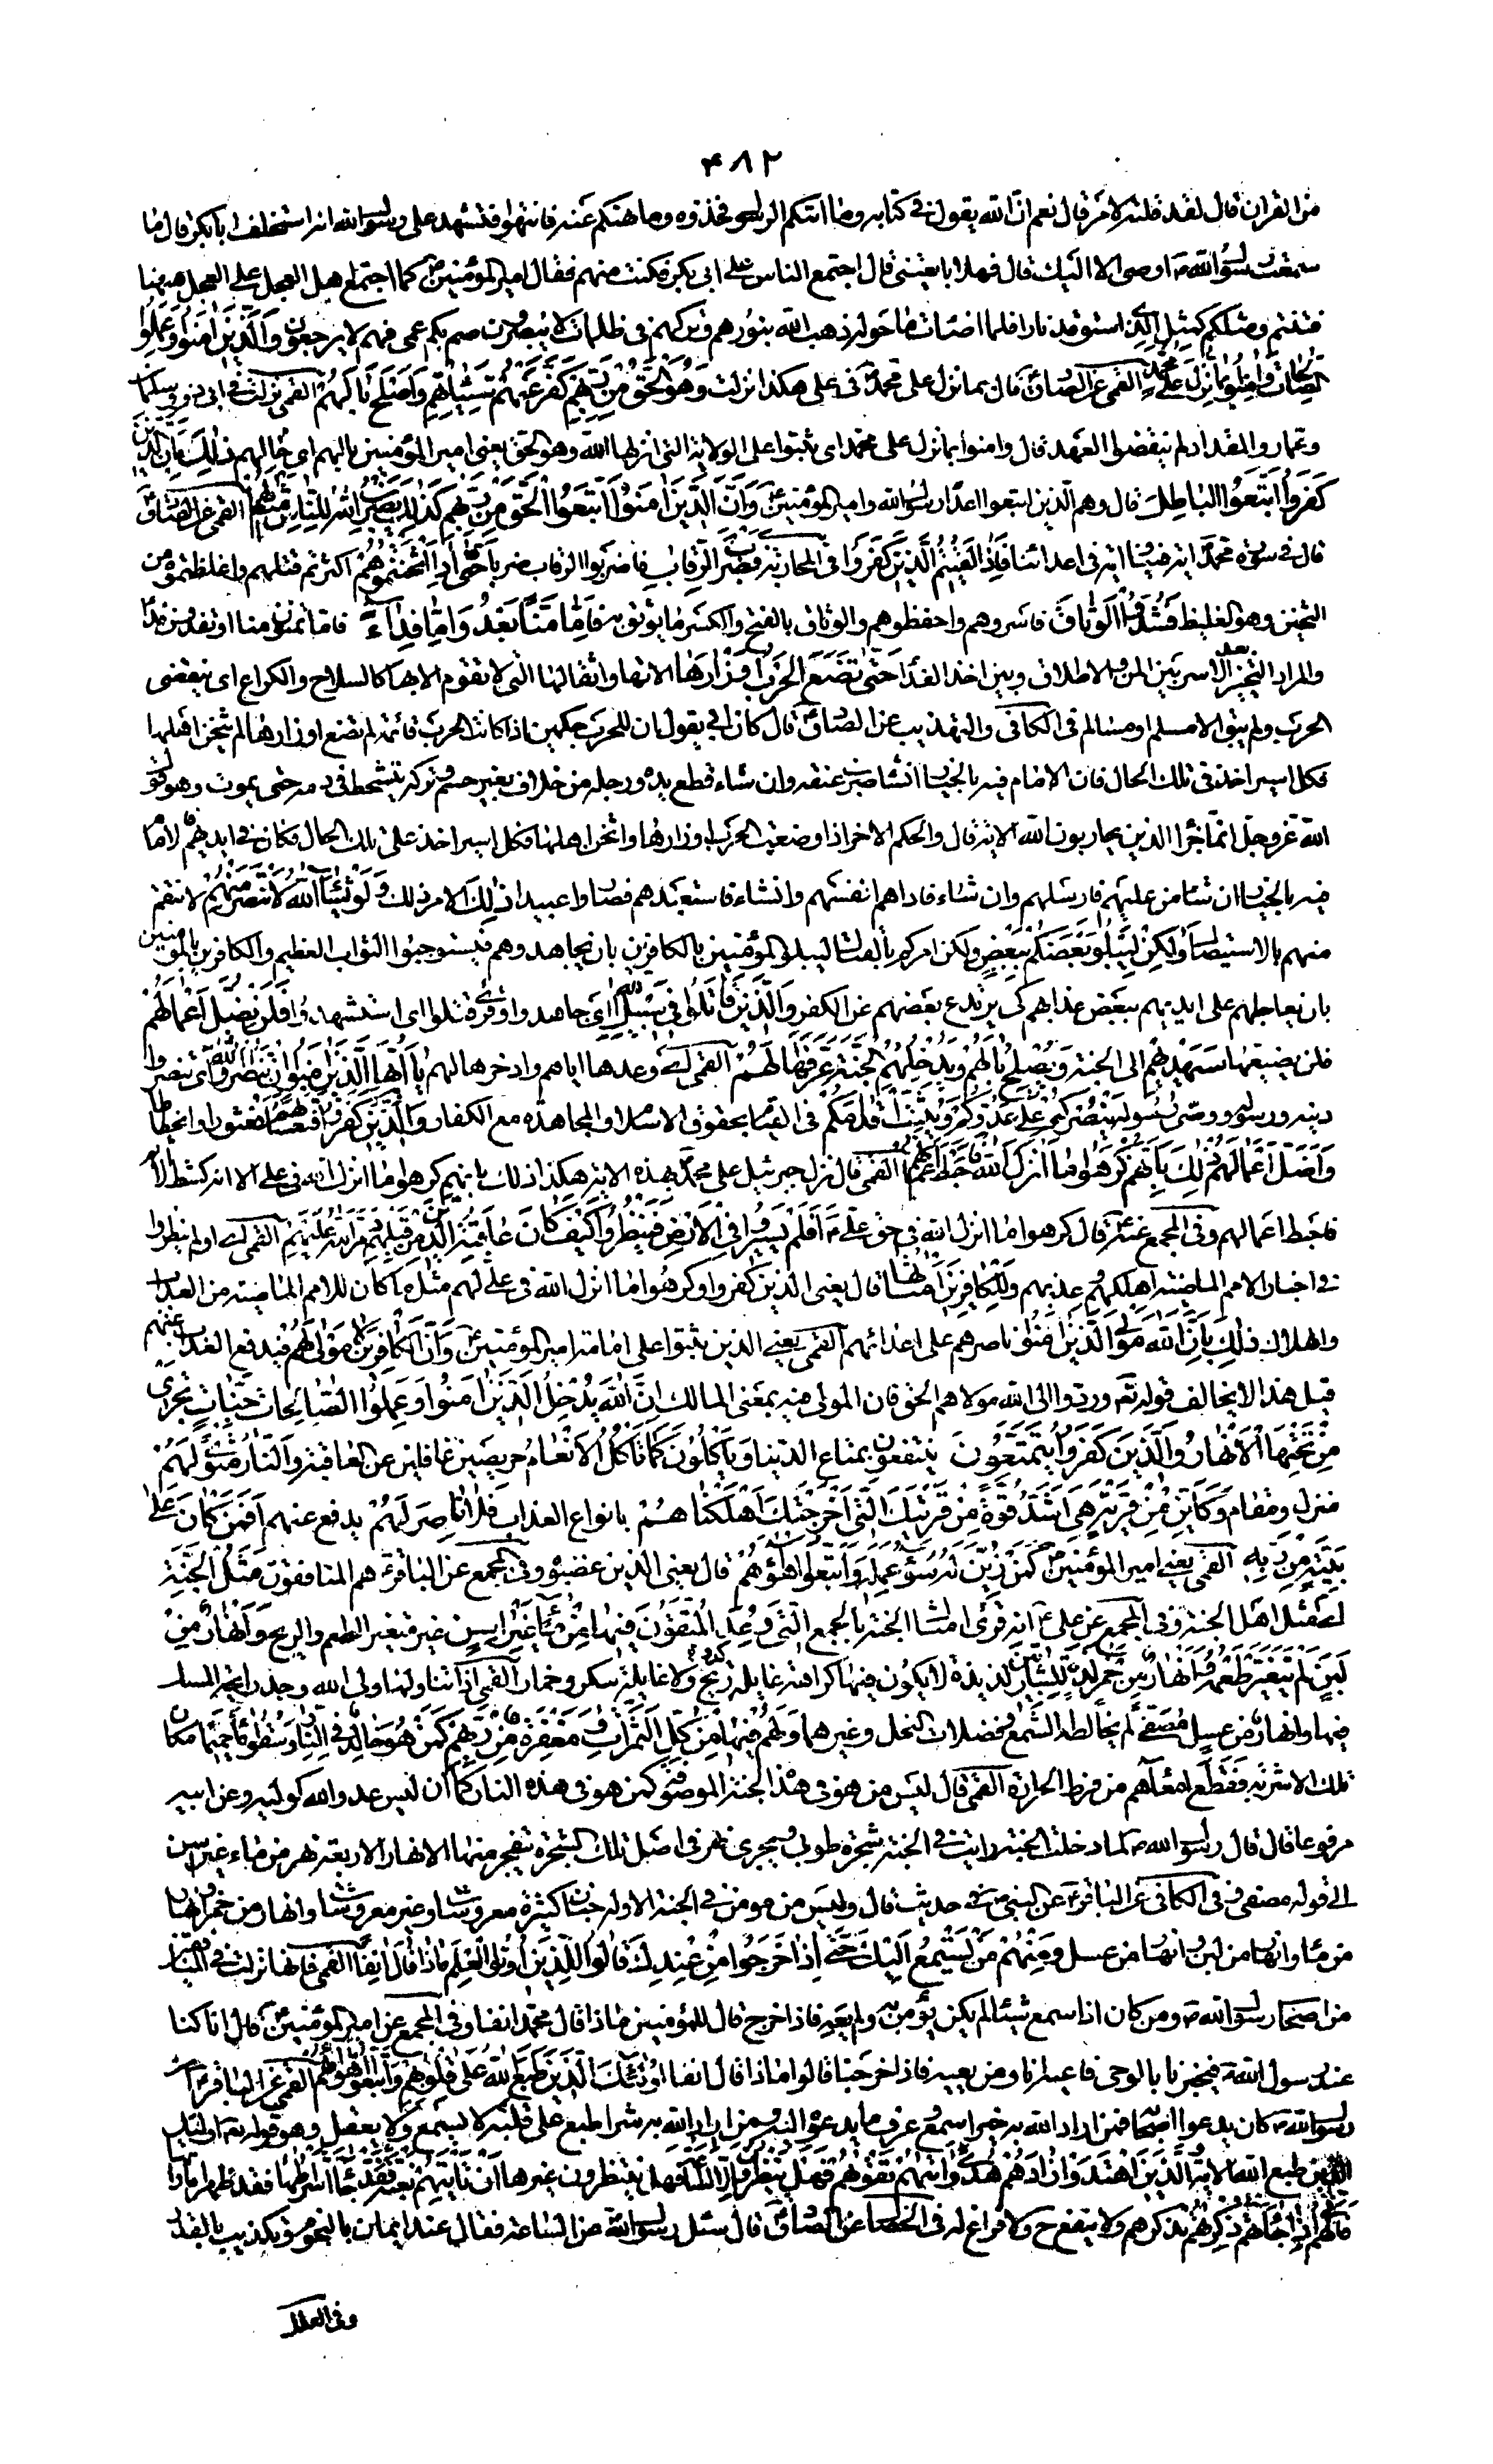 ۴۸۲
من القران قال لقد قلته لامر قال نعم ان الله يقول في كتابه وما اتيكم الرسول فخذوه وما نهيكم عنه فانتهوا فتشهد على رسول الله انه استخلف ابا بكر قال ما
سمعت رسول الله ص اوصى الا اليك قال فهلا بايعتني قال اجتمع الناس على ابي بكر فكنت منهم فقال امير المؤمنين ع كما اجتمع اهل العجل على العجل ههنا
فتنتم ومثلكم كمثل الذي استوقد نارا فلما اضائت ما حوله ذهب الله بنورهم وتركهم في ظلمات لا يبصرون صم بكم عمي فهم لا يرجعون والذين امنوا وعملوا
الصالحات وامنوا بما نزل على محمد القمي عن الصادق ع قال بما نزل على محمد في علي هكذا نزلت وهو الحق من ربهم كفر عنهم سيئاتهم واصلح بالهم القمي نزلت في ابي ذر وسلمان
وعمار والمقداد لم ينقضوا العهد قال وامنوا بما نزل على محمد اي ثبتوا على الولاية التي انزلها الله وهو الحق يعني امير المؤمنين بالهم اي حالهم ذلك بان الذين
كفروا اتبعوا الباطل قال وهم الذين اتبعوا اعداء رسول الله وامير المؤمنين ع وان الذين امنوا اتبعوا الحق من ربهم كذلك يضرب الله للناس امثالهم القمي عن الصادق ع
قال في سورة محمد اية فينا واية في اعدائنا فاذا لقيتم الذين كفروا في المحاربة فضرب الرقاب فاضربوا الرقاب ضربا حتى اذا اثخنتموهم اكثرتم قتلهم واغلظتموه من
الثخين وهو الغليظ فشدوا الوثاق فاسروهم واحفظوهم والوثاق بالفتح والكسر ما يوثق به فاما منا بعد واما فداء فاما تمنون منا او تفدون فداء
والمراد التخيير بعد الاسر بين المن والاطلاق وبين اخذ الفداء حتى تضع الحرب اوزارها الاتها واثقالها التي لا تقوم الا بها كالسلاح والكراع اي ينقضي
الحرب ولم يبق الا مسلم او مسالم في الكافي والتهذيب عن الصادق ع قال كان ابي يقول ان للحرب حكمين اذا كانت الحرب قائمة لم تضع اوزارها لم يثخن اهلها
فكل اسير اخذ في تلك الحال فان الامام فيه بالخيار ان شاء ضرب عنقه وان شاء قطع يده ورجله من خلاف بغير حسم وتركه يتشحط في دمه حتى يموت وهو قول
الله عز وجل انما جزاء الذين يحاربون الله الاية قال والحكم الاخر اذا وضعت الحرب اوزارها واثخن اهلها فكل اسير اخذ على تلك الحال فكان في ايديهم فالامام
فيه بالخيار ان شاء من عليهم فارسلهم وان شاء فاداهم انفسهم وان شاء استعبدهم فصاروا عبيدا ذلك الامر ذلك ولو يشاء الله لانتصر منهم لانتقم
منهم بالاستيصال ولكن ليبلو بعضكم ببعض ولكن امركم بالقتال ليبلو المؤمنين بالكافرين بان يجاهدوهم فيستوجبوا الثواب العظيم والكافرين بالمؤمنين
بان يعاجلهم على ايديهم ببعض عذابهم كي يرتدع بعضهم عن الكفر والذين قاتلوا في سبيل الله اي جاهدوا وقرئ قتلوا اي استشهدوا فلن يضل اعمالهم
فلن يضيعها سيهديهم الى الجنة ويصلح بالهم ويدخلهم الجنة عرفها لهم القمي اي وعدها اياهم وادخرها لهم يا ايها الذين امنوا ان تنصروا الله اي تنصروا
دينه ورسوله ووصي رسوله ينصركم على عدوكم ويثبت اقدامكم في القيام بحقوق الاسلام والمجاهدة مع الكفار والذين كفروا فتعسا لهم فعثورا وانحطاطا
واضل اعمالهم ذلك بانهم كرهوا ما انزل الله فاحبط اعمالهم القمي قال نزل جبرئيل على محمد بهذه الاية هكذا ذلك بانهم كرهوا ما انزل الله في علي الا انه كشط الاسم
فاحبط اعمالهم وفي المجمع عنه ع قال كرهوا ما انزل الله في حق علي ع افلم يسيروا في الارض فينظروا كيف كان عاقبة الذين من قبلهم دمر الله عليهم القمي اي اولم ينظروا
في اخبار الامم الماضية اهلكهم وعذبهم وللكافرين امثالها قال يعني الذين كفروا وكرهوا ما انزل الله في علي لهم مثل ما كان للامم الماضية من العذاب
والهلاك ذلك بان الله مولى الذين امنوا ناصرهم على اعدائهم القمي يعني الذين ثبتوا على امامة امير المؤمنين ع وان الكافرين لا مولى لهم فيدفع العذاب عنهم
قيل هذا لا يخالف قوله تع وردوا الى الله مولاهم الحق فان المولى فيه بمعنى المالك ان الله يدخل الذين امنوا وعملوا الصالحات جنات تجري
من تحتها الانهار والذين كفروا يتمتعون ينتفعون بمتاع الدنيا وياكلون كما تاكل الانعام حريصين غافلين عن العاقبة والنار مثوى لهم
منزل ومقام وكاين من قرية هي اشد قوة من قريتك التي اخرجتك اهلكناهم بانواع العذاب فلا ناصر لهم يدفع عنهم افمن كان على
بينة من ربه القمي يعني امير المؤمنين ع كمن زين له سوء عمله واتبعوا اهوائهم قال يعني الذين غضبوه وفي المجمع عن الباقر ع هم المنافقون مثل الجنة
اي مثل اهل الجنة وفي المجمع عن علي ع انه قرئ امثال الجنة بالجمع التي وعد المتقون فيها انهار من ماء غير اسن غير متغير الطعم والريح وانهار من
لبن لم يتغير طعمه وانهار من خمر لذة للشاربين لذيذة لا يكون فيها كراهة غايلة ريح ولا غايلة سكر وخمار القمي اذا تناولها ولي الله وجد رايحة المسك
فيها وانهار من عسل مصفى لم يخالطه الشمع وفضلات النحل وغيرهما ولهم فيها من كل الثمرات ومغفرة من ربهم كمن هو خالد في النار وسقوا ماء حميما مكان
تلك الاشربة فقطع امعاءهم من فرط الحرارة القمي قال ليس من هو في هذه الجنة الموصوفة كمن هو في هذه النار كما ان ليس عدو الله كوليه وعن ابيه
مرفوعا قال قال رسول الله ص لما دخلت الجنة رايت في الجنة شجرة طوبى ويجري نهر في اصل تلك الشجرة تنفجر منها الانهار الاربعة نهر من ماء غير اسن
الى قوله مصفى وفي الكافي عن الباقر ع عن النبي ص في حديث قال وليس من مؤمن في الجنة الا وله جنان كثيرة معروشات وغير معروشات وانهار من خمر وانهار
من ماء وانهار من لبن وانهار من عسل ومنهم من يستمع اليك حتى اذا خرجوا من عندك قالوا للذين اوتوا العلم ماذا قال انفا القمي فانها نزلت في المنافقين
من اصحاب رسول الله ص ومن كان اذا سمع شيئا لم يكن يؤمن به ولم يعه فاذا خرج قال للمؤمنين ماذا قال محمد انفا وفي المجمع عن امير المؤمنين ع قال انا كنا
عند رسول الله ص فيخبرنا بالوحي فاعيه انا ومن يعيه فاذا خرجنا قالوا ماذا قال انفا اولئك الذين طبع الله على قلوبهم واتبعوا اهوائهم القمي عن الباقر ع ان
رسول الله ص كان يدعو اصحابه فمن اراد الله به خيرا سمع وعرف ما يدعوه اليه ومن اراد الله به شرا طبع على قلبه لا يسمع ولا يعقل وهو قوله تع اولئك
الذين طبع الله الاية والذين اهتدوا زادهم هدى واتيهم تقويهم فهل ينظرون الا الساعة فهل ينتظرون غيرها ان تاتيهم بغتة فقد جاء اشراطها فقد ظهر اماراتها
فانى لهم اذا جائتهم ذكريهم تذكرهم ولا ينفع ح ولا فراغ له في الخصال عن الصادق ع قال سئل رسول الله عن الساعة فقال عند ايمان بالنجوم وتكذيب بالقدر
وفي العلل